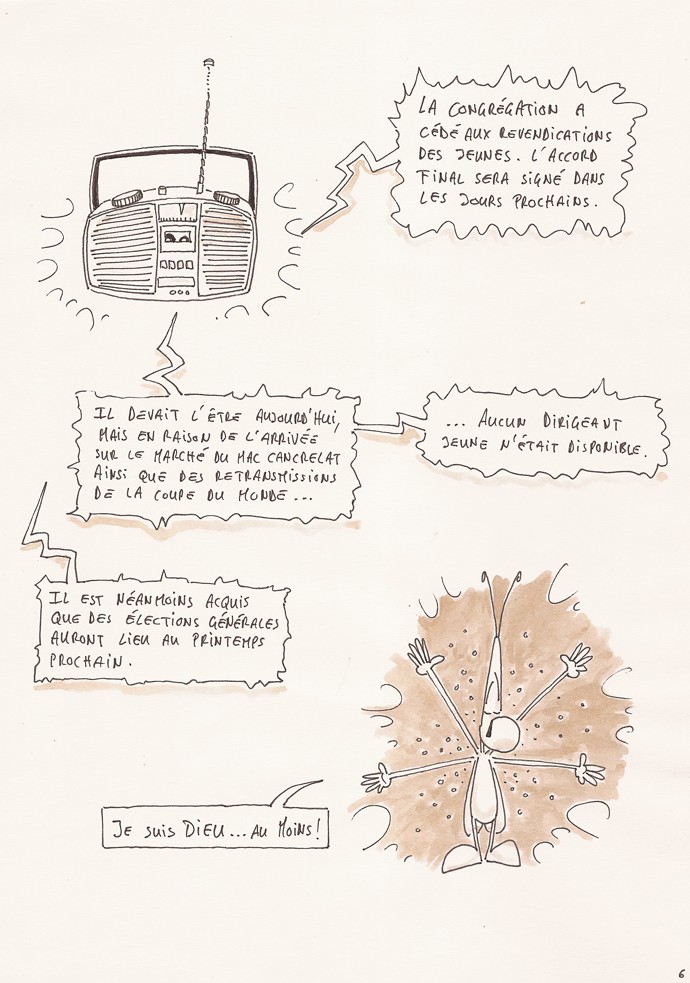 LA CONGRÉGATION A
CÉDÉ AUX REVENDICATIONS
DES JEUNES. L'ACCORD
FINAL SERA SIGNÉ DANS
LES JOURS PROCHAINS.
IL DEVAIT L'ÊTRE AUJOURD'HUI,
MAIS EN RAISON DE L'ARRIVÉE
SUR LE MARCHÉ DU MAC CANCRELAT
AINSI QUE DES RETRANSMISSIONS
DE LA COUPE DU MONDE...
... AUCUN DIRIGEANT
JEUNE N'ÉTAIT DISPONIBLE.
IL EST NÉANMOINS ACQUIS
QUE DES ÉLECTIONS GÉNÉRALES
AURONT LIEU AU PRINTEMPS
PROCHAIN.
JE SUIS DIEU... AU MOINS!
6